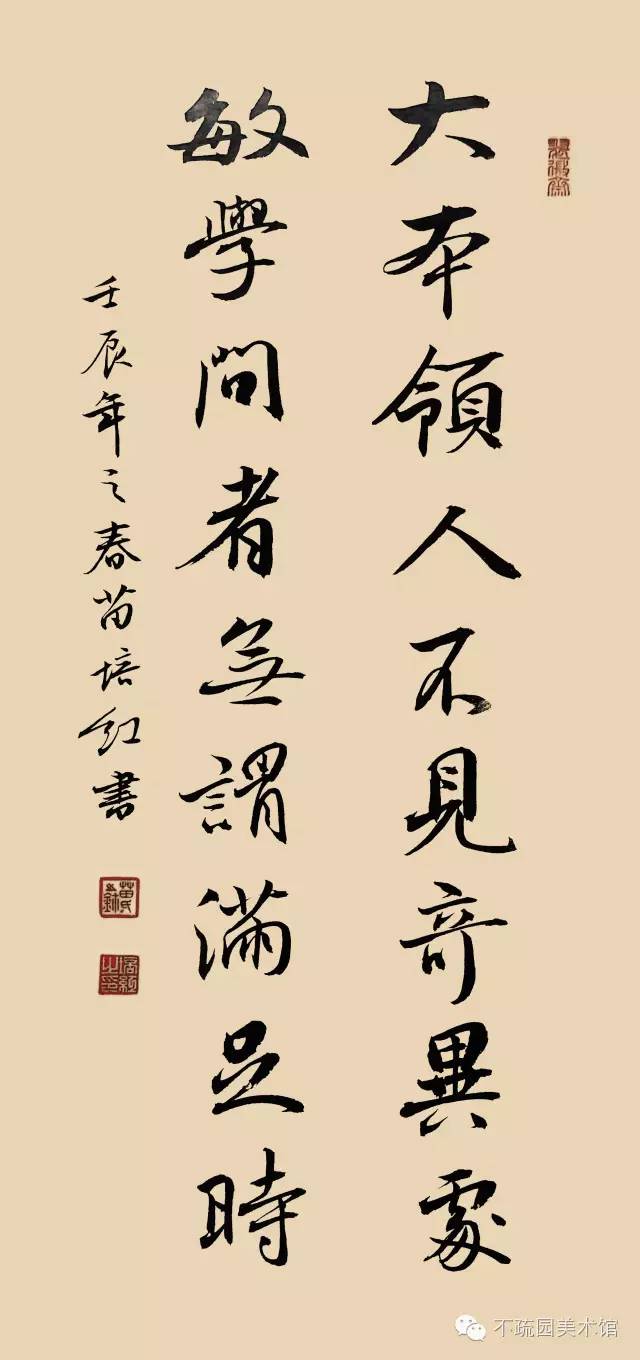 大本領人不見奇異處
敏學問者無謂滿足時
壬辰年之春苗培红書
不疏园美术馆